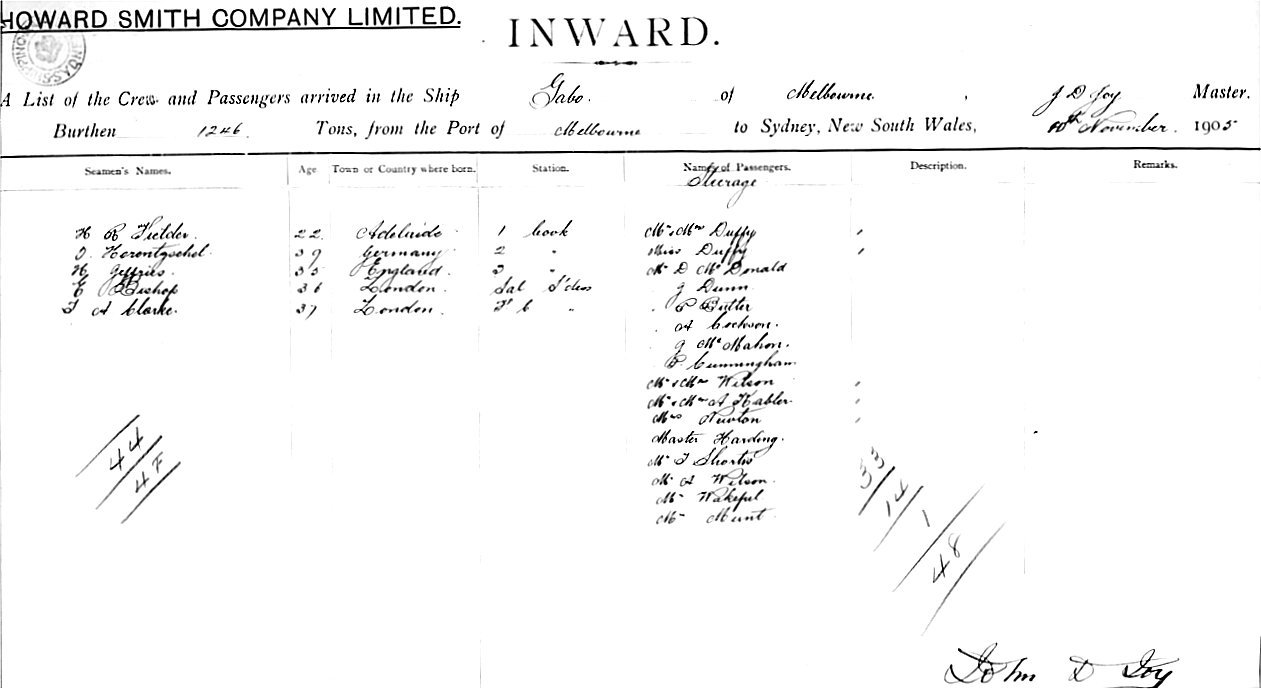 HOWARD SMITH COMPANY LIMITED.
INWARD.
A List of the Crew and Passengers arrived in the Ship Gabo. of Melbourne, J D Joy Master.
Burthen 1246 Tons, from the Port of Melbourne to Sydney, New South Wales, November. 1905
Seamen's Names. Age Town or Country where born. Station. Names of Passengers. Description. Remarks.
Steerage
H R Fielder. 22. Adelaide 1 Cook Mr & Mrs Duffy
39 Germany 2 " Miss Duffy
H Jeffries. 35 England. 3 " Mr D McDonald
E Bishop 36 London. Sal S'dess J Dunn
A Clarke. 37 London. " P Butler
A Cockson.
J McMahon.
P. Cunningham.
Mr & Mrs Wilson
Mr & Mrs A Kabler.
Mrs Newton
Master Harding.
Mr T Shortis
Mr A Wilson.
Mr Wakeful
Mr Munt
44
4F
33
14
1
48
John D Joy